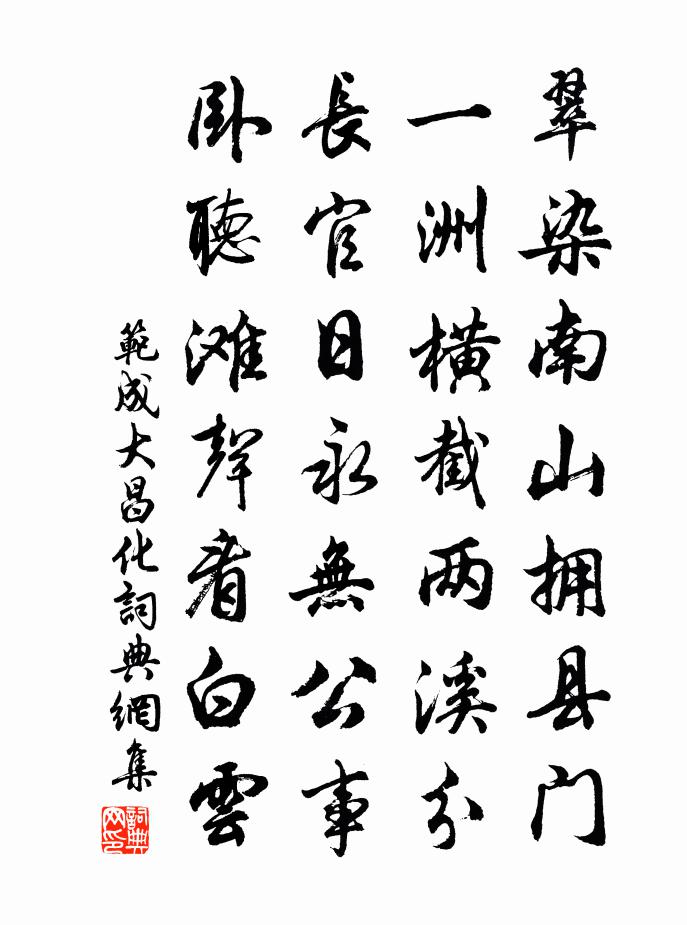 翠染南山拥县门
一洲横截两溪分
長官日永無公事
卧聽滩聲看白雲
範成大昌化詞典網集
詞典网印